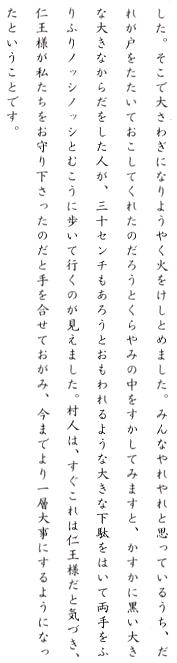 した。そこで大さわぎになりようやく火をけしとめました。みんなやれやれと思っているうち、だ
れが戸をたたいておこしてくれたのだろうとくらやみの中をすかしてみますと、かすかに黒い大き
な大きなからだをした人が、三十センチもあろうとおもわれるような大きな下駄をはいて両手をふ
りふりノッシノッシとむこうに歩いて行くのが見えました。村人は、すぐこれは仁王様だと気づき、
仁王様が私たちをお守り下さったのだと手を合せておがみ、今までより一層大事にするようになっ
たということです。